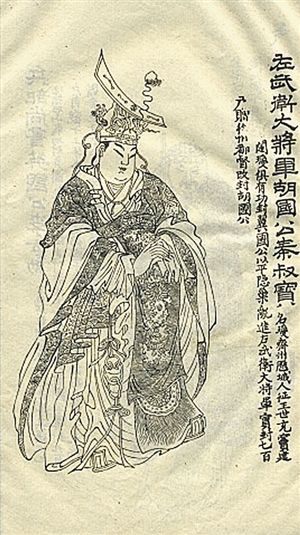 左武衛大將軍胡國公秦叔寶 名瓊齊州歷城人征王世充竇建
闥瓊俱有功封翼國公以平隱巢亂進左武衛大將軍實封七百
戶贈徐州都督改封胡國公